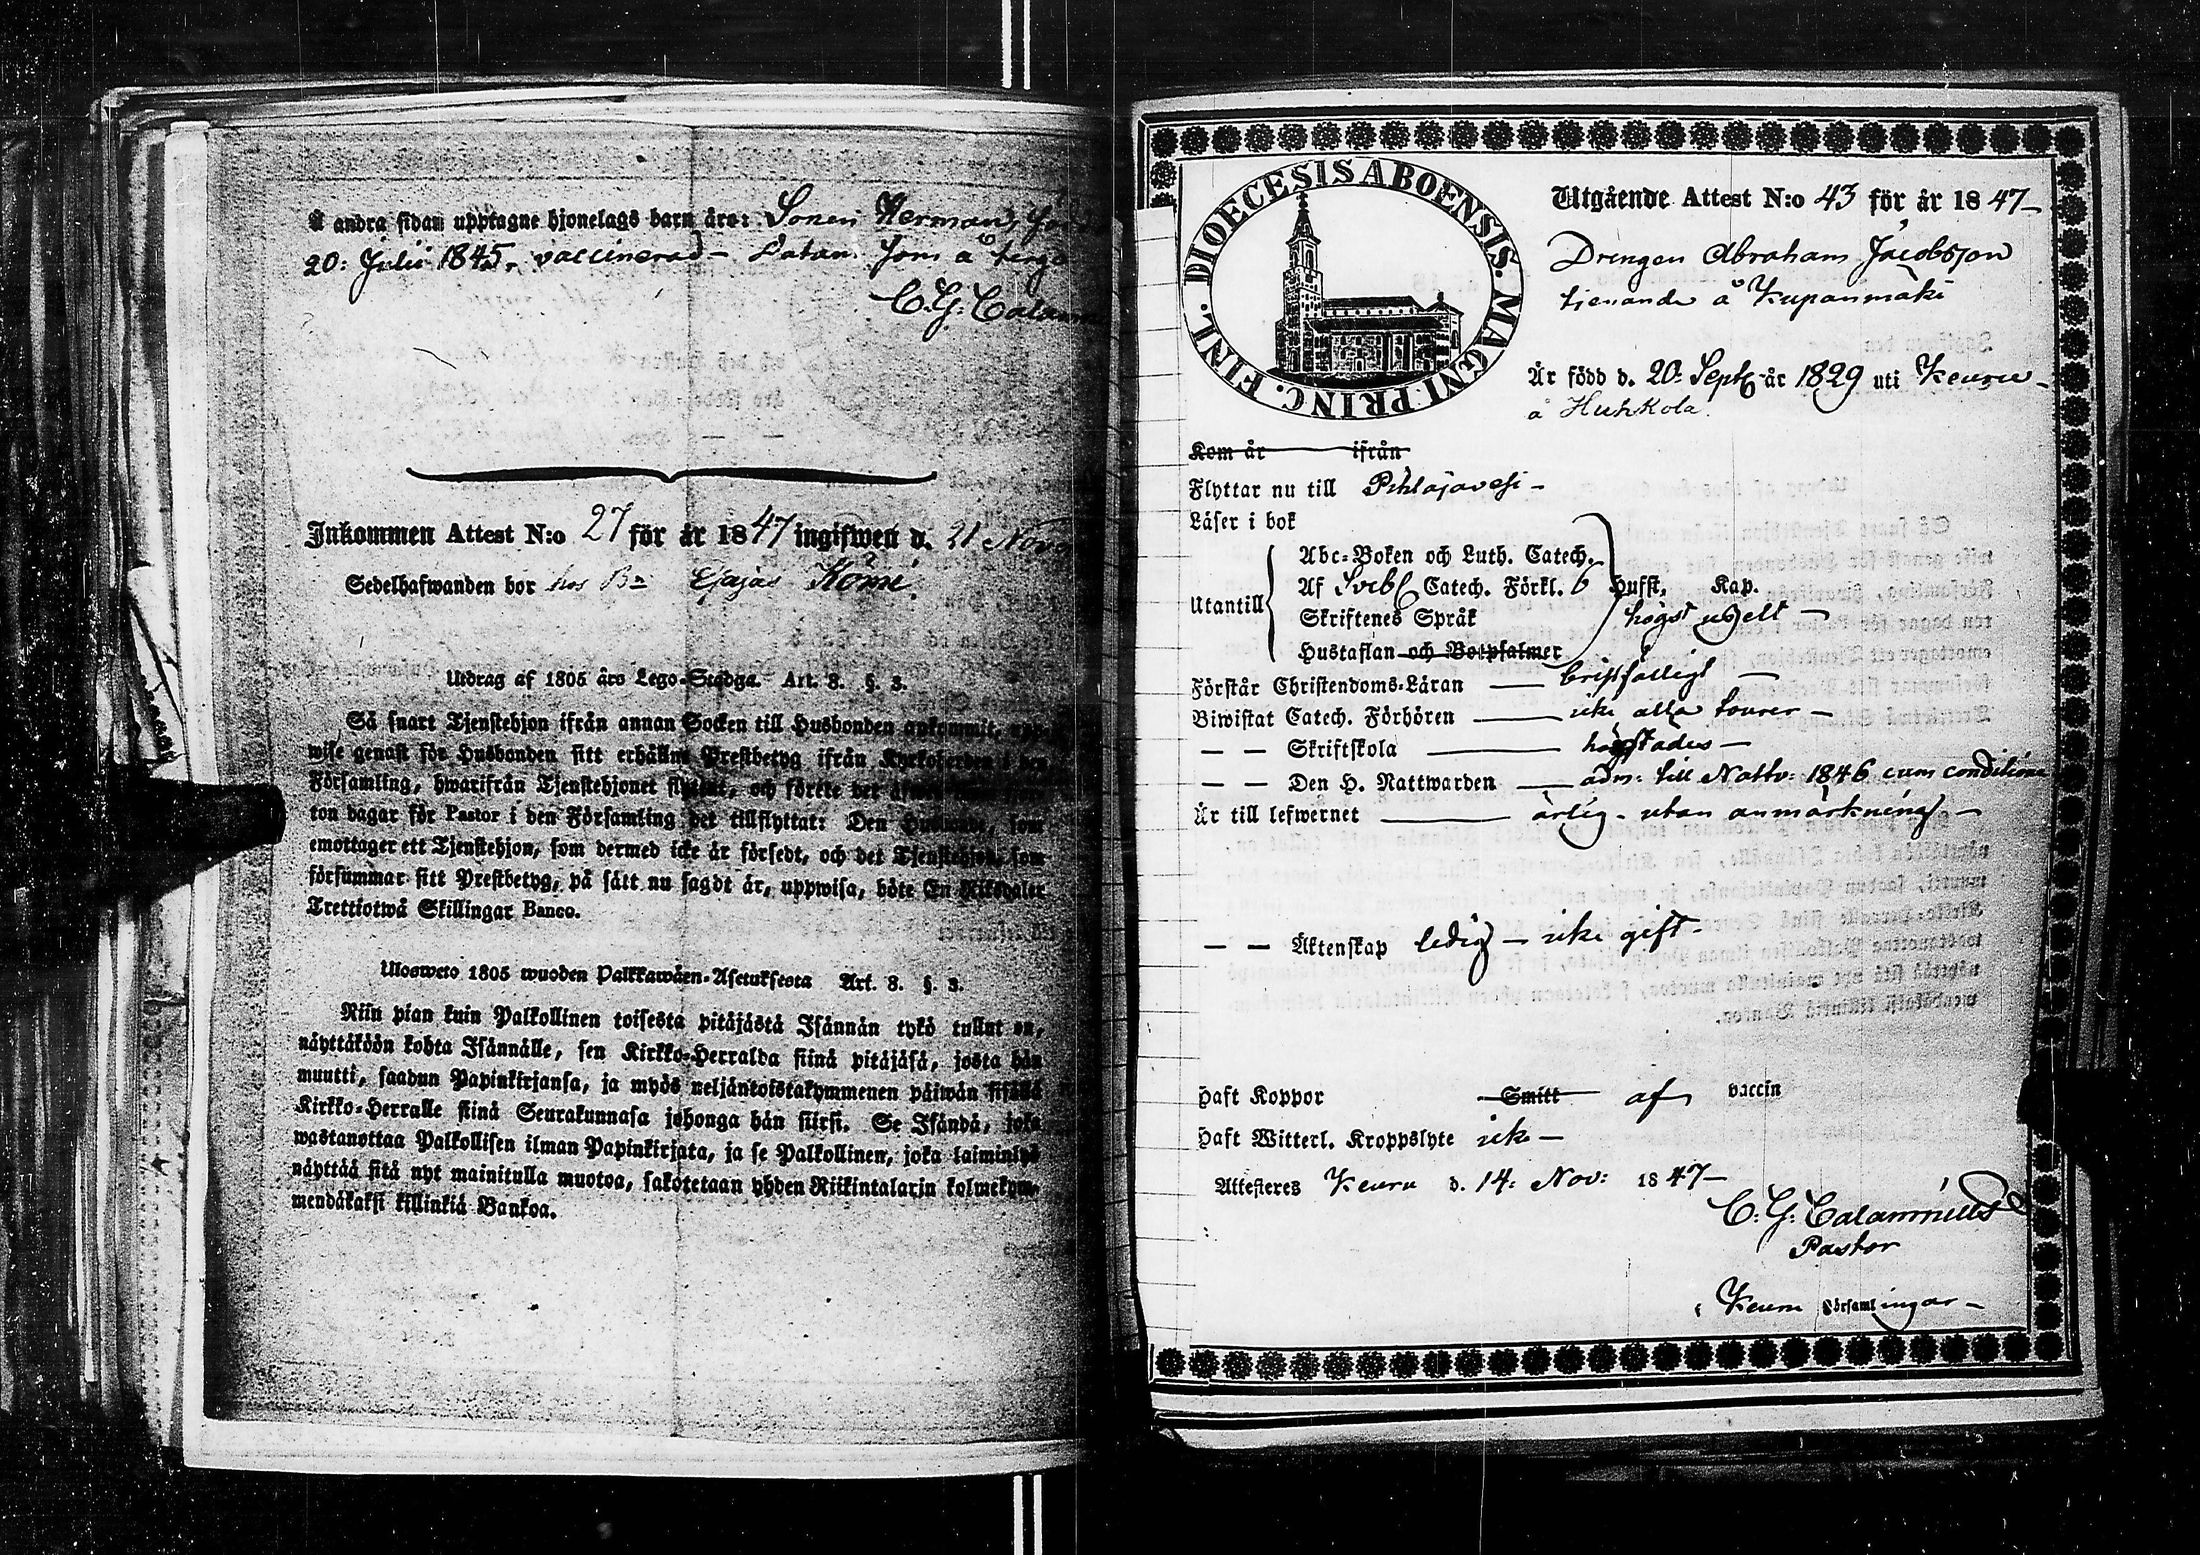 Å andra sidan upptagne hjonelags barn äro: Sonen Herman, född
20: Julii 1845, vaccinerad – Datum som å tergo
C. G. Calamnius
Inkommen Attest N:o 27 för år 1847 ingifwen d. 21 Nov
Sedelhafwanden bor hos Bn Esajas Kömi.
Utdrag af 1805 års Lego-Stadga. Art. 8. §. 3.
Så snart Tjenstehjon ifrån annan Socken till Husbonden ankommit, upp-
wise genast för Husbonden sitt erhållne Prestbetyg ifrån Kyrkoherden i den
Församling, hwarifrån Tjenstehjonet flyttat, och förete det
ton dagar för Pastor i den Församling det tillflyttat: Den Husbonde, som
emottager ett Tjenstehjon, som dermed icke är försedt, och det Tjenstehjon, som
försummar sitt Prestbetyg, på sätt nu sagdt är, uppwisa, böte En Riksdaler
Trettiotwå Skillingar Banco.
Ulosweto 1805 wuoden Palkkawäen-Asetuksesta Art. 8. §. 3.
Niin pian kuin Palkollinen toisesta pitäjästä Isännän tykö tullut on,
näyttäköön kohta Isännälle, sen Kirkko-Herralda siinä pitäjäsä, josta hän
muutti, saadun Papinkirjansa, ja myös neljäntoistakymmenen päiwän sisällä
Kirkko-Herralle siinä Seurakunnasa johonga hän siirsi. Se Isändä, joka
wastanottaa Palkollisen ilman Papinkirjata, ja se Palkollinen, joka laiminlyö
näyttää sitä nyt mainitulla muotoa, sakotetaan yhden Riikintalarin kolmekym-
mendäkaksi killinkiä Bankoa.
DIOECESIS ABOENSIS. MAGNI. PRINC. FINL.
Utgående Attest N:o 43 för år 1847 –
Drengen Abraham Jacobsson
tienande å Kupanmäki
Är född d. 20: Sept. år 1829 uti Keuru –
å Huhkola.
Kom år ifrån
Flyttar nu till Pihlajavesi –
Läser i bok
Abc-Boken och Luth. Catech.
Utantill Af Svebl Catech. Förkl. 6 Hufst. Kap.
Skriftenes Språk högst uselt –
Hustaflan och Botpsalmer
Förstår Christendoms-Läran — bristfälligt –
Biwistat Catech. Förhören — icke alla tourer –
— — Skriftskola —
— — Den H. Nattwarden — adm: till Nattv: 1846 cum conditione
Är till lefwernet — ärlig – utan anmärkning –
— — Äktenskap ledig – icke gift –
Haft Koppor Smitt af vaccin
Haft Witterl. Kroppslyte icke –
Attesteres Keuru d. 14: Nov: 1847 –
C. G. Calamnius
Pastor
i Keuru Församlingar –